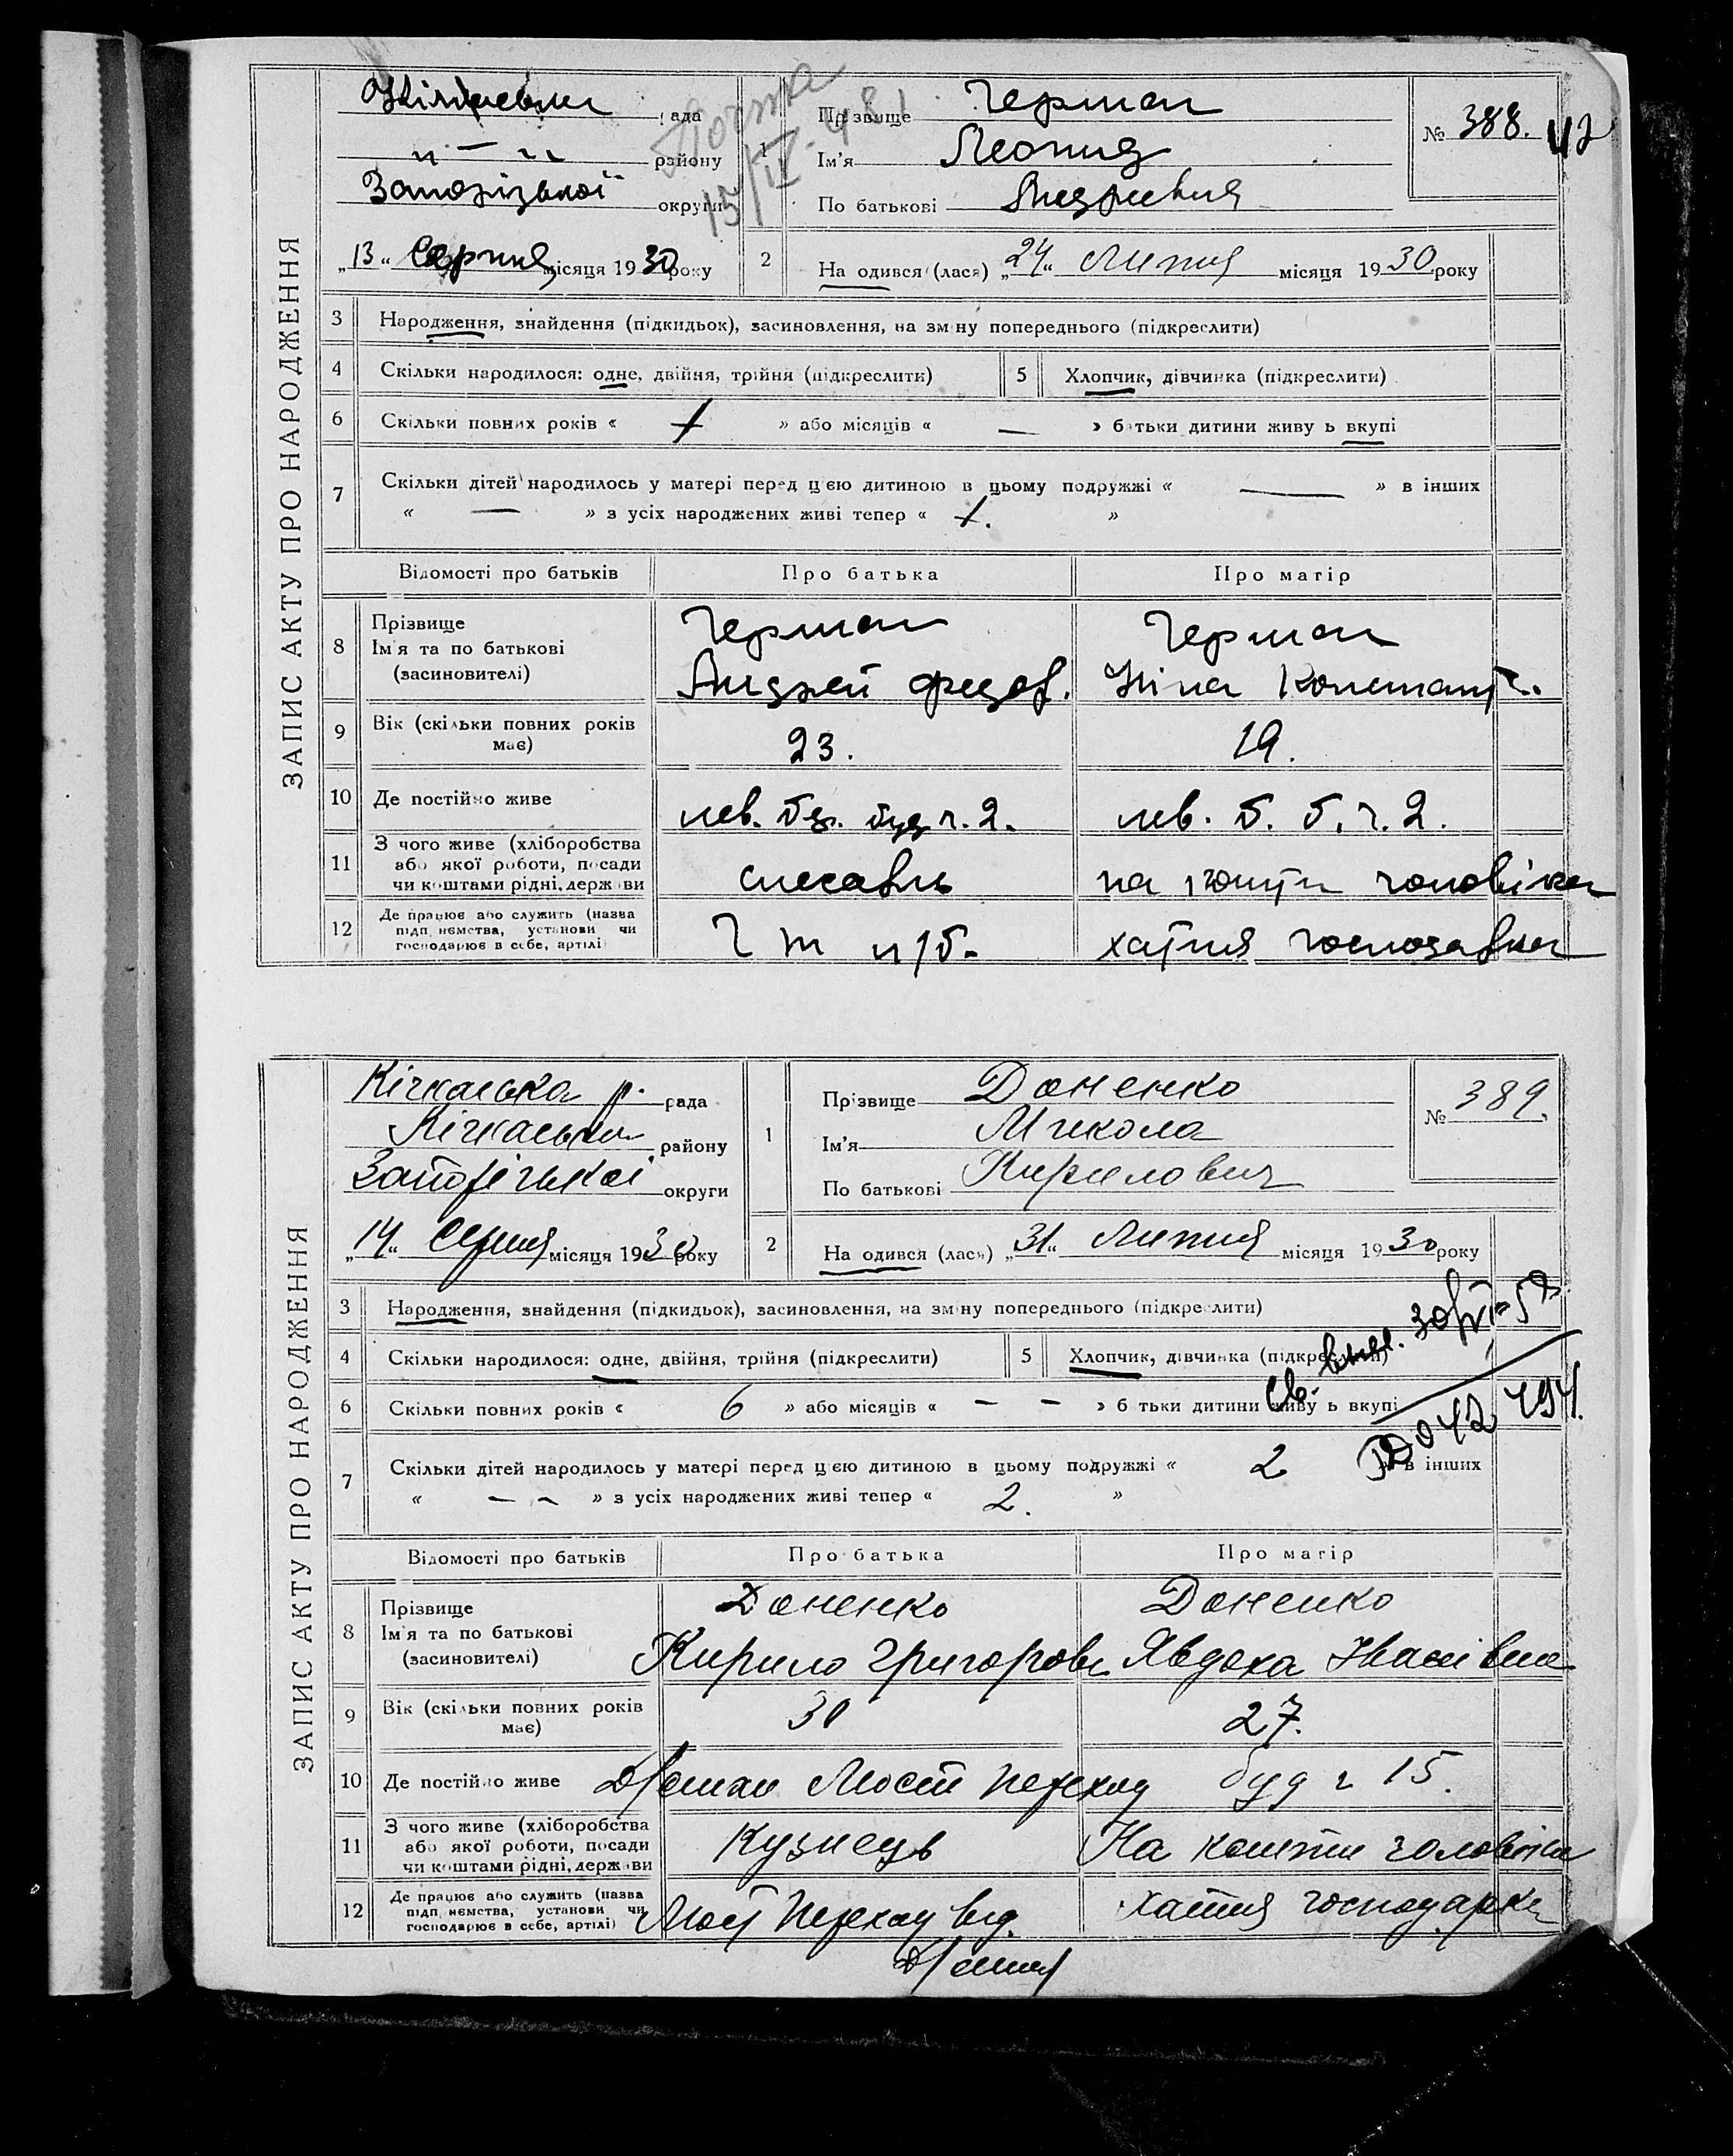 ЗАПИС АКТУ ПРО НАРОДЖЕННЯ
рада
" — " району
Запорізької округи
„13“ Серпня місяця 1930 року
1
Прізвище Герман
Ім'я Леонид
По батькові Андриевич
№ 388. 42
2 На одився (лася) „24“ Липня місяця 1930 року
3 Народження, знайдення (підкидьок), засиновлення, на зміну попереднього (підкреслити)
4 Скільки народилося: одне, двійня, трійня (підкреслити) 5 Хлопчик, дівчинка (підкреслити)
6 Скільки повних років « 1 » або місяців « — » батьки дитини живу ь вкупі
7 Скільки дітей народилось у матері перед цією дитиною в цьому подружжі « — » в інших
« — » з усіх народжених живі тепер « 1. »
Відомості про батьків Про батька Про матір
8 Прізвище
Ім'я та по батькові
(засиновителі)
Герман
Андрей Федор.
Герман
Ніна Констант.
9 Вік (скільки повних років має) 23. 19.
10 Де постійно живе лев. буд ч. 2. лев. б. б. ч. 2.
11 З чого живе (хліборобства або якої роботи, посади чи коштами рідні, держави слесарь на кошти чоловіка
12 Де працює або служить (назва підп иємства, установи чи господарює в себе, артілі) хатня господарка
ЗАПИС АКТУ ПРО НАРОДЖЕННЯ
Кічкаська р. рада
Кічкаська району
Запорізької округи
„14“ Серпня місяця 1930 року
1
Прізвище Доненко
Ім'я Микола
По батькові Кирилович
№ 389.
2 На одився (лася) „31“ Липня місяця 1930 року
3 Народження, знайдення (підкидьок), засиновлення, на зміну попереднього (підкреслити)
4 Скільки народилося: одне, двійня, трійня (підкреслити) 5 Хлопчик, дівчинка (підкреслити)
6 Скільки повних років « 6 » або місяців « — — » б тьки дитини живу ь вкупі
7 Скільки дітей народилось у матері перед цією дитиною в цьому подружжі « 2 » в інших
« — — » з усіх народжених живі тепер « 2. »
Відомості про батьків Про батька Про матір
8 Прізвище
Ім'я та по батькові
(засиновителі)
Доненко
Кирило Григоров
Доненко
Явдоха Іванівна
9 Вік (скільки повних років має) 30 27.
10 Де постійно живе Мост переход буд ч 15.
11 З чого живе (хліборобства або якої роботи, посади чи коштами рідні, держави Кузнець На кошти чоловіка
12 Де працює або служить (назва підп иємства, установи чи господарює в себе, артілі) Мост Переход від. Хатня господарка